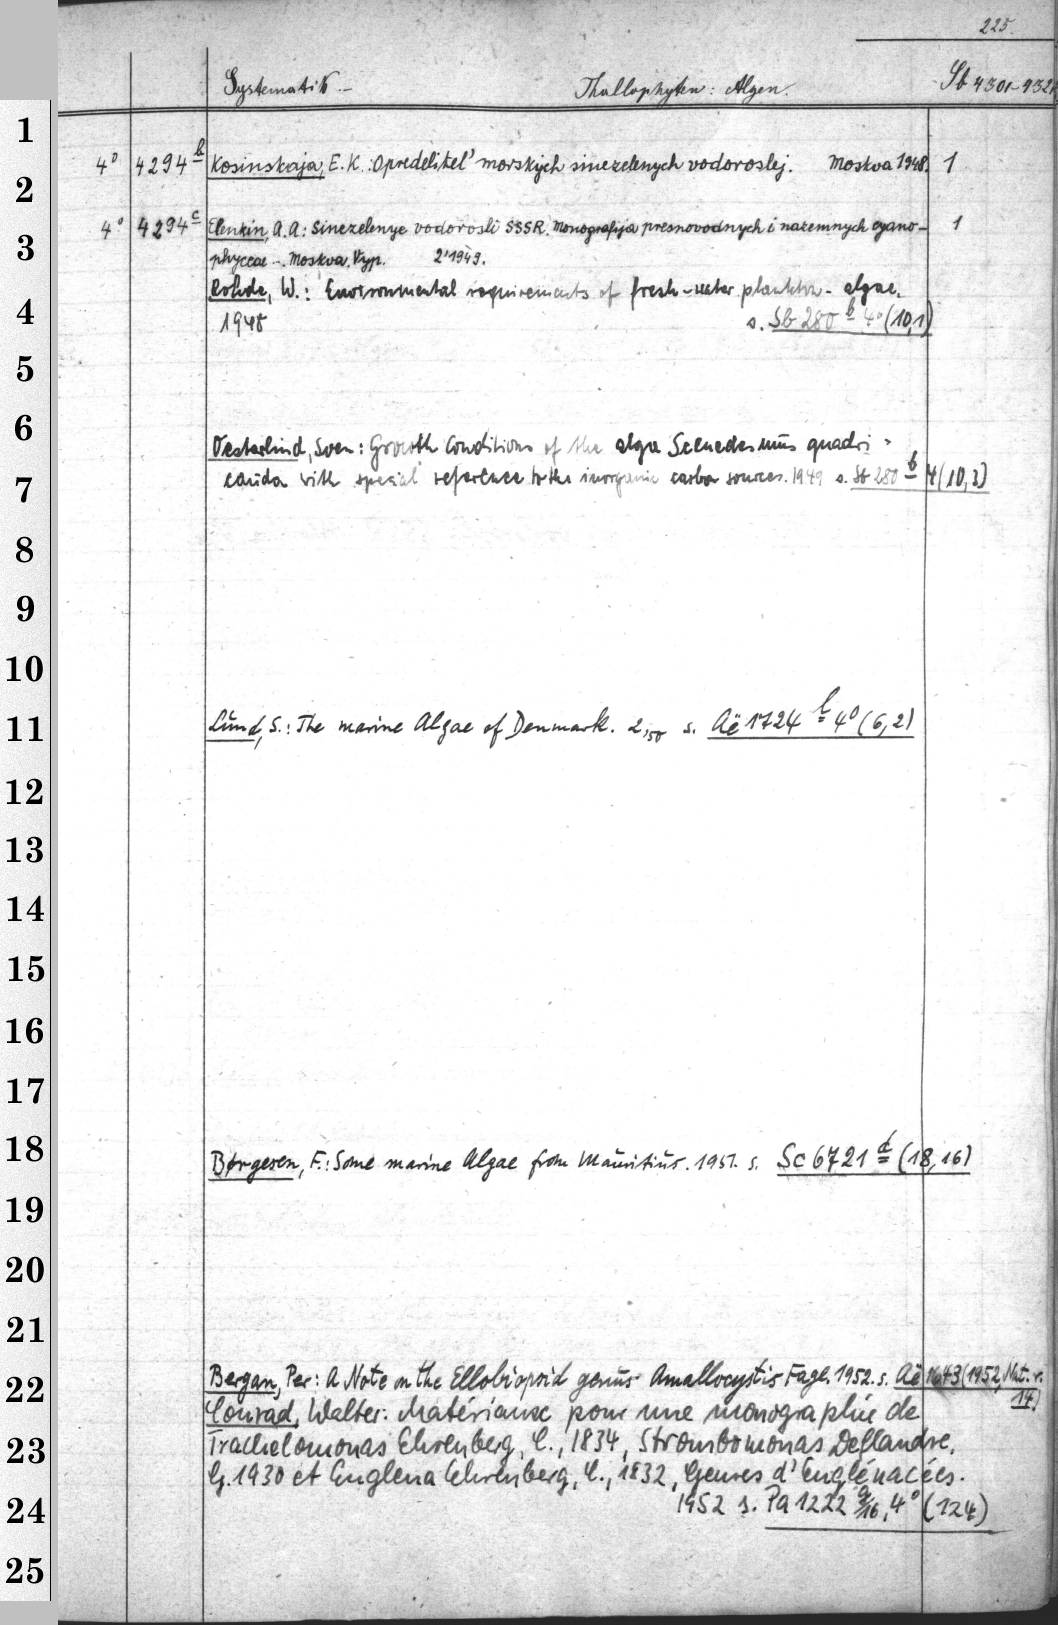 225.
Systematik – Thallophyten: Algen. Sb 4301–432
1
4° 4294 b Kosinskaja, E. K.: Opredelitel' morskych sinezelenych vodoroslej. Moskva 1948. 1
2
4° 4294 c Elenkin, A. A.: Sinezelenye vodorosli SSSR. Monografija presnovodnych i nazemnych cyano- 1
3
phyceae - Moskva. Vyp. 2 1949.
Rohde, W.: Environmental requirements of fresh-water plankton-algae.
4
1948 s. Sb 280 b 4° (10,1)
5
6
Oesterlind, Sven: Growth Conditions of the alga Scenedesmus quadri-
7
cauda with special reference to the inorganic carbon sources. 1949 s. Sb 280 b 4 (10,3)
8
9
10
11
Lund, S.: The marine Algae of Denmark. 2,50 s. Aë 1724 b 4° (6,2)
12
13
14
15
16
17
18
Børgesen, F.: Some marine Algae from Mauritius. 1951. s. Sc 6721 d (18,16)
19
20
21
22
Bergan, Per: A Note on the Ellobiopsid genus Amallocystis Fage. 1952. s. Aë 1643 (1952, Nat. r. 14)
Conrad, Walter: Matériaux pour une monographie de
23
Trachelomonas Ehrenberg, C., 1834, Strombomonas Deflandre,
G. 1930 et Euglena Ehrenberg, C., 1832, Genres d'Euglénacées.
24
1952 s. Pa 1222 a/16, 4° (124)
25